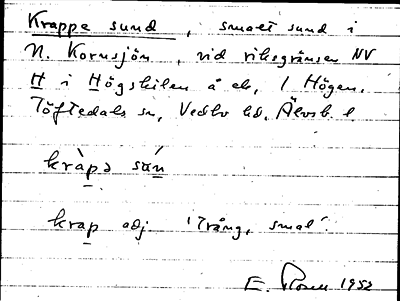 Krappe sund, smalt sund i
N. Kornsjön, vid riksgränsen NV
H i Högskilen å ek, 1 Högen.
Töftedals sn, Vedbo hd. Älvsb. l
kràpə sún
krap adj 'trång, smal'.
E. 1952